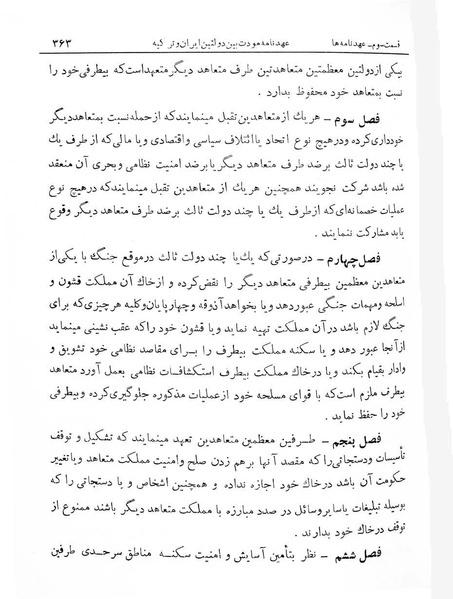 قسمت سوم ـ عهدنامه‌ها عهدنامه مودت بین دولتین ایران و ترکیه ۳۶۳
یکی از دولتین معظمتین متعاهدتین طرف متعاهد دیگر متعهد است که بیطرفی خود را
نسبت بمتعاهد خود محفوظ بدارد.
فصل سوم – هریک از متعاهدین تقبل مینمایند که از حمله نسبت بمتعاهد دیگر
خودداری کرده و در هیچ نوع اتحاد یا ائتلاف سیاسی و اقتصادی و یا مالی که از طرف یک
یا چند دولت ثالث بر ضد طرف متعاهد دیگر یا بر ضد امنیت نظامی و بحری آن منعقد
شده باشد شرکت نجویند همچنین هریک از متعاهدین تقبل مینمایند که در هیچ نوع
عملیات خصمانه‌ای که از طرف یک یا چند دولت ثالث بر ضد طرف متعاهد دیگر وقوع
یابد مشارکت ننمایند .
فصل چهارم – در صورتی که یک یا چند دولت ثالث در موقع جنگ با یکی از
متعاهدین معظمین بیطرفی متعاهد دیگر را نقض کرده و از خاک آن مملکت قشون و
اسلحه و مهمات جنگی عبور دهد و یا بخواهد آذوقه و چهارپایان و کلیه هر چیزی که برای
جنگ لازم باشد در آن مملکت تهیه نماید و یا قشون خود را که عقب نشینی مینماید
از آنجا عبور دهد و یا سکنه مملکت بیطرف را برای مقاصد نظامی خود تشویق و
وادار بقیام بکند و یا در خاک مملکت بیطرف استکشافات نظامی بعمل آورد متعاهد
بیطرف ملزم است که با قوای مسلحه خود از عملیات مذکوره جلوگیری کرده و بیطرفی
خود را حفظ نماید .
فصل پنجم – طرفین معظمین متعاهدین تعهد مینمایند که تشکیل و توقف
تأسیسات و دستجاتی را که مقصد آنها برهم زدن صلح و امنیت مملکت متعاهد و یا تغییر
حکومت آن باشد در خاک خود اجازه نداده و همچنین اشخاص و یا دستجاتی را که
بوسیله تبلیغات یا سایر وسائل در صدد مبارزه با مملکت متعاهد دیگر باشند ممنوع از
توقف در خاک خود بدارند .
فصل ششم – نظر بتأمین آسایش و امنیت سکنه مناطق سرحدی طرفین